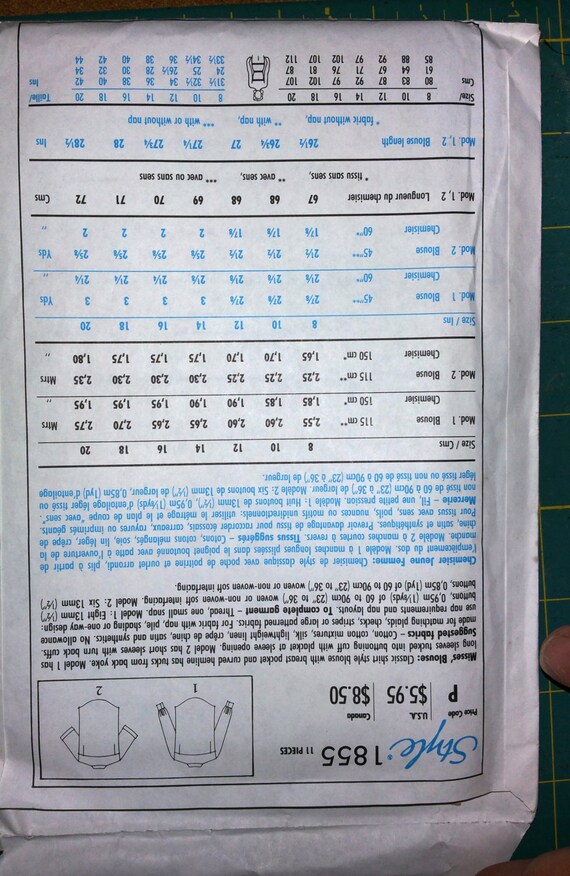 Style 1855 11 PIECES
Price Code U.S.A. Canada
P $5.95 $8.50
1 2
Misses' Blouse: Classic shirt style blouse with breast pocket and curved hemline has tucks from back yoke. Model 1 has
long sleeves tucked into buttoning cuff with placket at sleeve opening. Model 2 has short sleeves with turn back cuffs.
Suggested fabrics – Cotton, cotton mixtures, silk, lightweight linen, crêpe de chine, satin and synthetics. No allowance
made for matching plaids, checks, stripes or large patterned fabrics. For fabric with nap, pile, shading or one-way design:
use nap requirements and nap layouts. To complete garment – Thread, one small snap. Model 1: Eight 13mm (½")
buttons, 0.95m (1⅛yds) of 60 to 90cm (23" to 36") woven or non-woven soft interfacing. Model 2: Six 13mm (½")
buttons, 0.85m (1yd) of 60 to 90cm (23" to 36") woven or non-woven soft interfacing.
Chemisier Jeune Femme: Chemisier de style classique avec poche de poitrine et ourlet arrondi, plis à partir de
l'empiècement du dos. Modèle 1 à manches longues plissées dans le poignet boutonné avec patte à l'ouverture de la
manche. Modèle 2 à manches courtes à revers. Tissus suggérés – Cotons, cotons mélangés, soie, lin léger, crêpe de
chine, satin et synthétiques. Prévoir davantage de tissu pour raccorder écossais, carreaux, rayures ou imprimés géants.
Pour tissus avec sens, poils, nuances ou motifs unidirectionnels: utiliser le métrage et le plan de coupe "avec sens".
Mercerie – Fil, une petite pression. Modèle 1: Huit boutons de 13mm (½"), 0,95m (1⅛yds) d'entoilage léger tissé ou
non tissé de 60 à 90cm (23" à 36") de largeur. Modèle 2: Six boutons de 13mm (½") de largeur, 0,85m (1yd) d'entoilage
léger tissé ou non tissé de 60 à 90cm (23" à 36") de largeur.
Size / Cms 8 10 12 14 16 18 20
Mod. 1 Blouse 115 cm** 2,55 2,60 2,60 2,65 2,65 2,70 2,75 Mtrs
Chemisier 150 cm* 1,85 1,85 1,90 1,90 1,95 1,95 1,95 ,,
Mod. 2 Blouse 115 cm** 2,25 2,25 2,25 2,30 2,30 2,30 2,35 Mtrs
Chemisier 150 cm* 1,65 1,70 1,70 1,75 1,75 1,75 1,80 ,,
Size / Ins 8 10 12 14 16 18 20
Mod. 1 Blouse 45"** 2⅞ 2⅞ 2⅞ 3 3 3 3 Yds
Chemisier 60"* 2⅛ 2⅛ 2⅛ 2⅛ 2¼ 2¼ 2¼ ,,
Mod. 2 Blouse 45"** 2½ 2½ 2½ 2⅝ 2⅝ 2⅝ 2⅝ Yds
Chemisier 60"* 1⅞ 1⅞ 1⅞ 2 2 2 2 ,,
Mod. 1, 2 Longueur du chemisier 67 68 68 69 70 71 72 Cms
* tissu sans sens, ** avec sens, *** avec ou sans sens
Mod. 1, 2 Blouse length 26½ 26¾ 27 27¼ 27¾ 28 28½ Ins
* fabric without nap, ** with nap, *** with or without nap
Size/ 8 10 12 14 16 18 20 8 10 12 14 16 18 20 Taille/
Cms 80 83 87 92 97 102 107 31½ 32½ 34 36 38 40 42 Ins
61 64 67 71 76 81 87 24 25 26½ 28 30 32 34
85 88 92 97 102 107 112 33½ 34½ 36 38 40 42 44